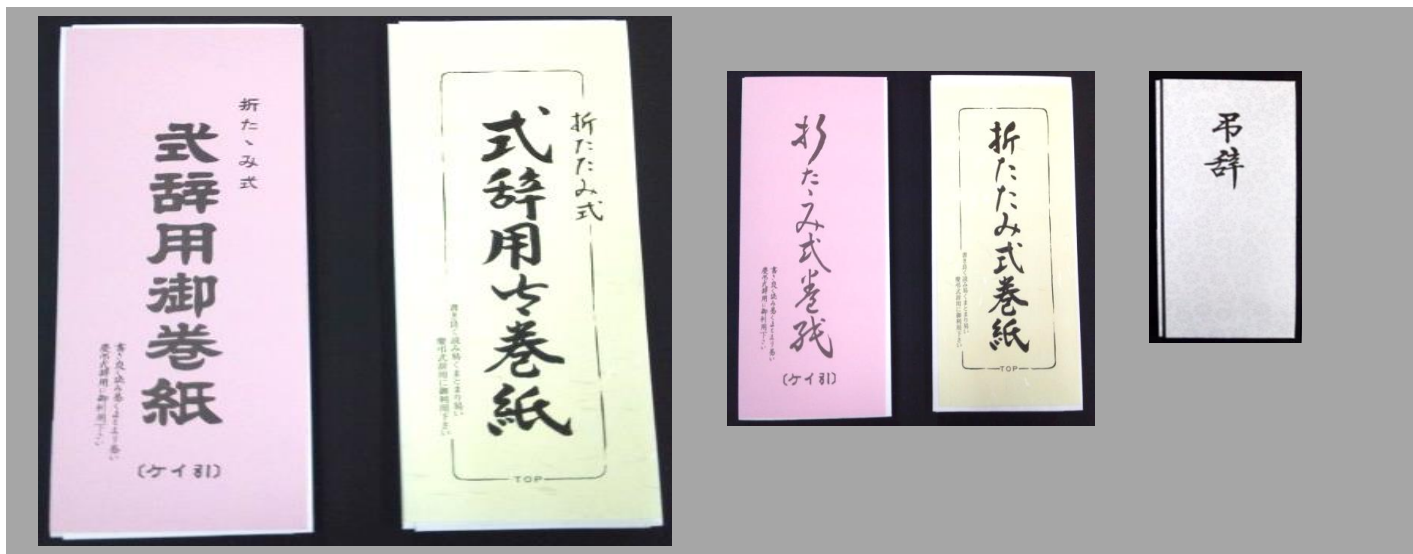 折たゝみ式
式辞用御巻紙
書き良く読み易くまとまり易い
慶弔式辞用に御利用下さい
(ケイ引)
折たたみ式
式辞用古巻紙
書き良く読み易くまとまり易い
慶弔式辞用に御利用下さい
TOP
折たゝみ式巻紙
書き良く読み易くまとまり易い
慶弔式辞用に御利用下さい
(ケイ引)
折たたみ式巻紙
書き良く読み易くまとまり易い
慶弔式辞用に御利用下さい
TOP
弔辞